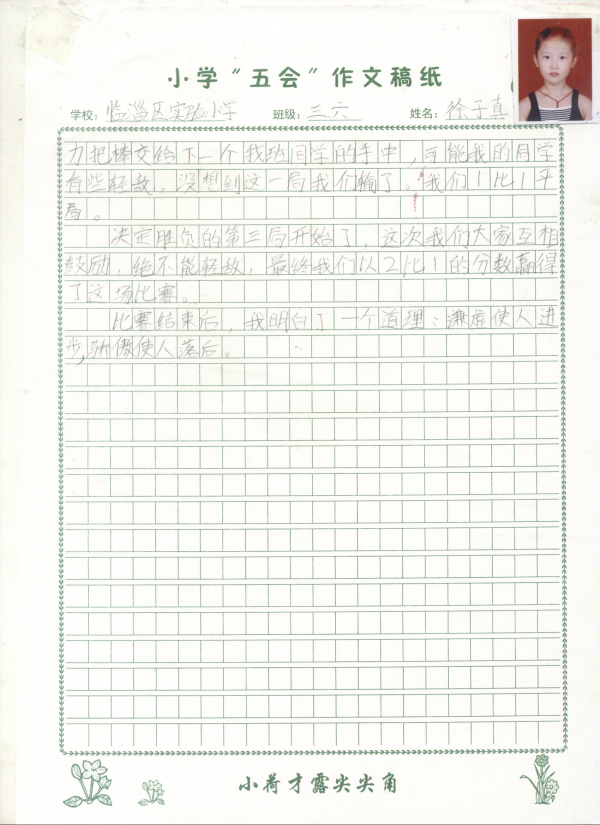 小学“五会”作文稿纸
学校：临淄区实验小学 班级：三六 姓名：徐子真
力把棒交给下一个我班同学的手中，可能我的同学
有些轻敌，没想到这一局我们输了。我们1比1平
局。
决定胜负的第三局开始了，这次我们大家互相
鼓励，绝不能轻敌，最终我们以2比1的分数赢得
了这场比赛。
比赛结束后，我明白了一个道理：谦虚使人进
步，骄傲使人落后。
小荷才露尖尖角